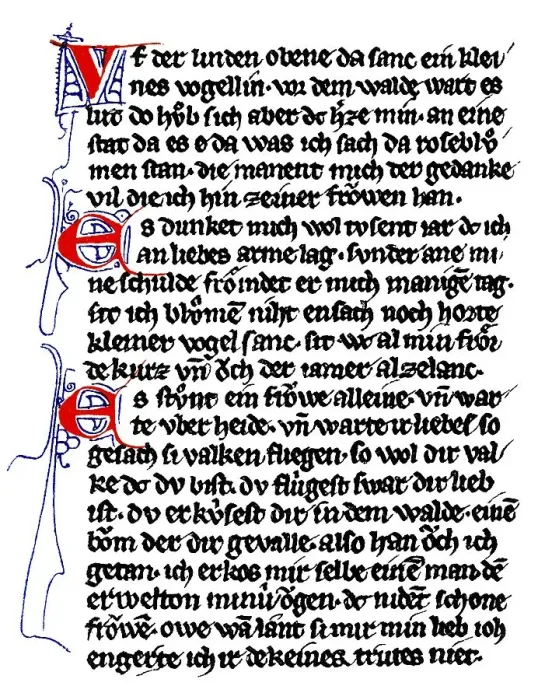 Vf der linden obene da sanc ein klei
nes vogellin· vor dem walde wart es
lut do hůb sich aber dc h̾ze min· an eine
stat da es e da was ich sach da roseblů
men stan· die manent mich der gedanke
vil die ich hin zeiner frǒwen han·
Es dunket mich wol tvsent iar dc ich
an liebes arme lag· svnder ane mi
ne schulde frǒmdet er mich manigē tag·
sit ich blůmē niht ensach noch horte
kleiner vogel sanc· sit wc al min frǒi
de kurz vn̄ ǒch der iamer alzelanc·
Es stůnt ein frǒwe alleine· vn̄ war
te vber heide· vn̄ warte ir liebes so
gesach si valken fliegen· so wol dir val
ke dc dv bist· dv flůgest swar dir lieb
ist· dv erkůsest dir in dem walde· einē
bǒm der dir gevalle· also han ǒch ich
getan· ich erkos mir selbe einē man· dē
erwelton minů ǒgen· dc nident schone
frǒwē· owe wā lant si mir min lieb ioh
engerte ich ir dekeines trutes niet·